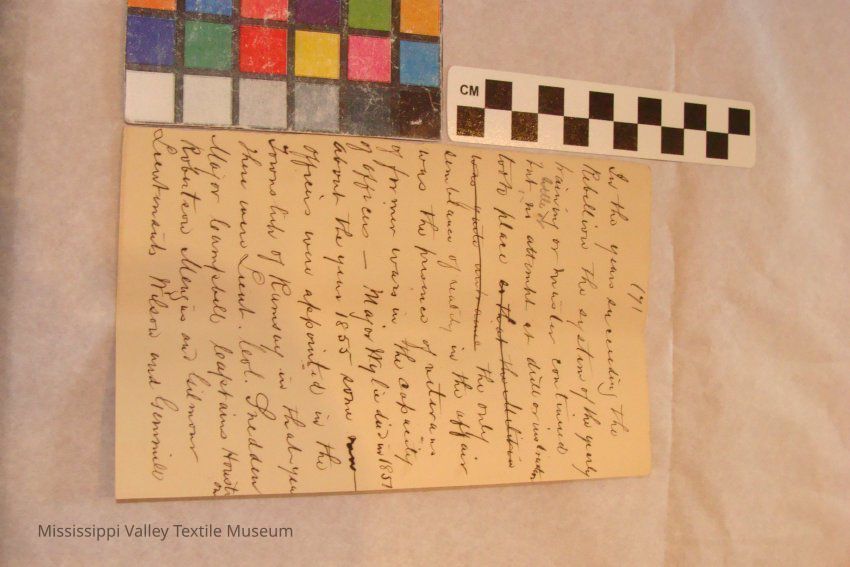 171
In the years succeeding the
Rebellion the system of the yearly
training or muster continued
but no attempt at drill or instruction
took place as that the Militia
was quite and some the only
semblance of reality in the affair
was the presence of veterans
of former wars in the capacity
of officers — Major Wylie died in 1851
about the year 1855 some new
officers were appointed in the
Township of Ramsay in that year
there were Lieut. Col. Snedden
Major Campbell Captains Houston
Robertson Menzies and Gilmour
Lieutenants Wilson and Gemmill
CM
Mississippi Valley Textile Museum